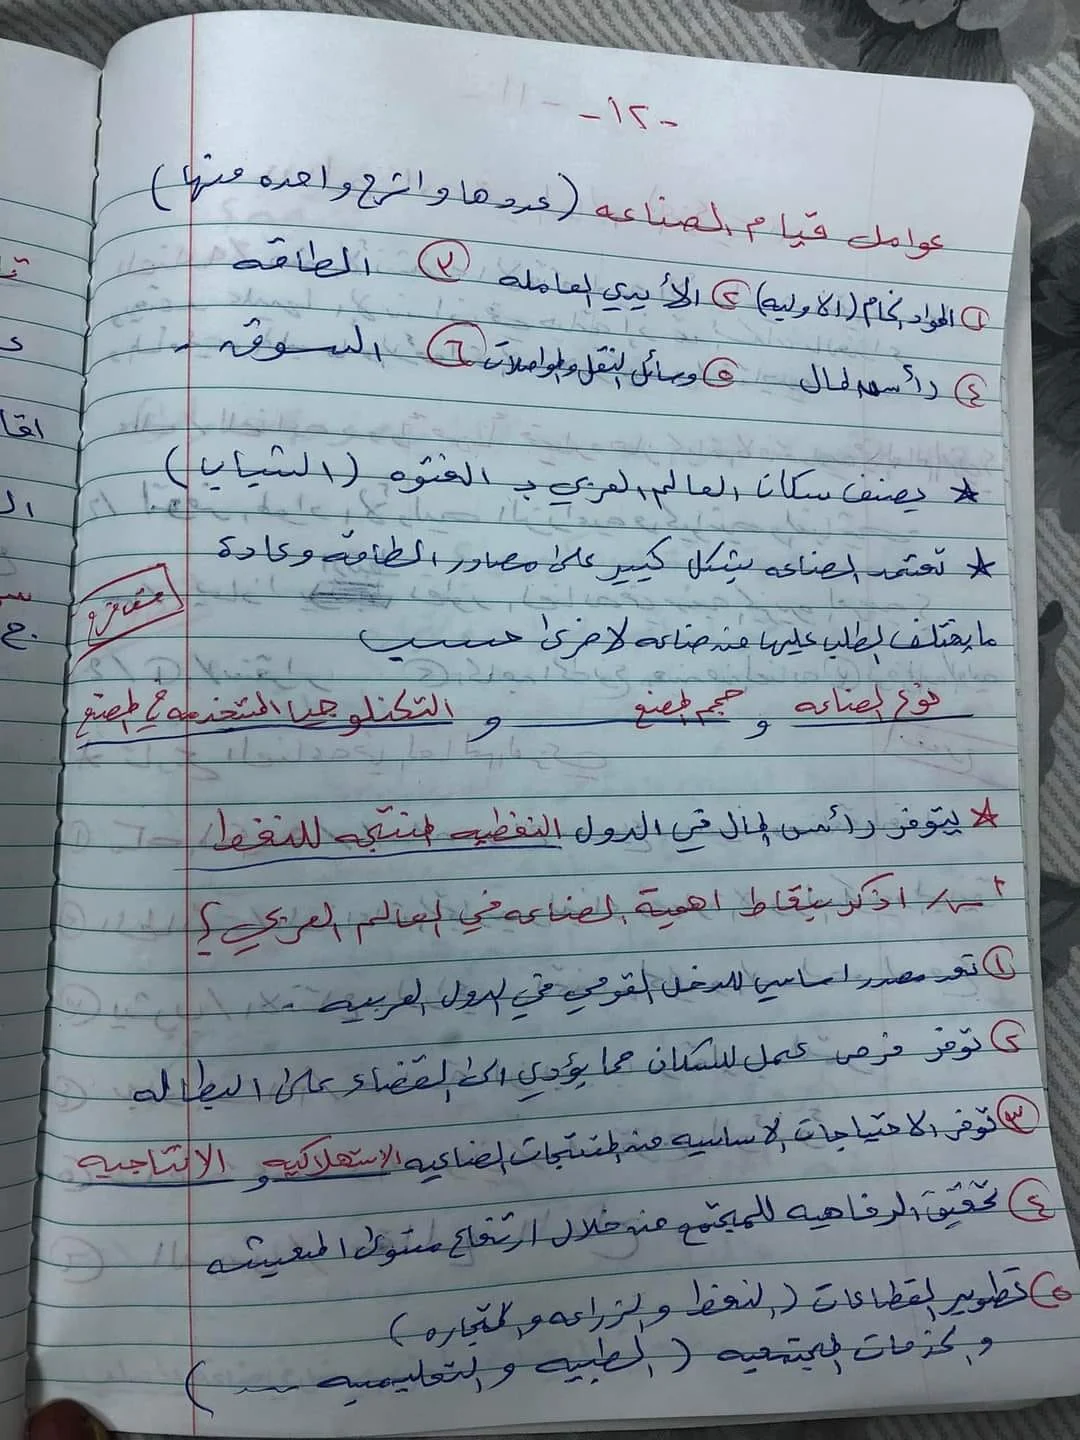 -١٢-
عوامل قيام الصناعه (عددها واشرح واحده منها)
① المواد الخام (الاوليه) ② الأيدي العامله ③ الطاقه
④ رأس المال ⑤ وسائل النقل والمواصلات ⑥ السوق .
* يصنف سكان العالم العربي بـ الفتوه (الشباب)
* تعتمد الصناعه بشكل كبير على مصادر الطاقه وعادة
ما يختلف الطلب عليها من صناعه لاخرى حسب
نوع الصناعه و حجم المصنع و التكنلوجيا المستخدمه في المصنع
* يتوفر رأس المال في الدول النفطيه المنتجه للنفط
س/ اذكر بنقاط اهمية الصناعه في العالم العربي ؟
① تعد مصدر اساسي للدخل القومي في الدول العربيه .
② توفر فرص عمل للسكان مما يؤدي الى القضاء على البطاله
③ توفر الاحتياجات الاساسيه من المنتجات الصناعيه الاستهلاكيه و الانتاجيه
④ تحقيق الرفاهيه للمجتمع من خلال ارتفاع مستوى المعيشه
⑤ تطوير القطاعات (النفط والزراعه والتجاره)
والخدمات المجتمعيه (الطبيه والتعليميه ...)